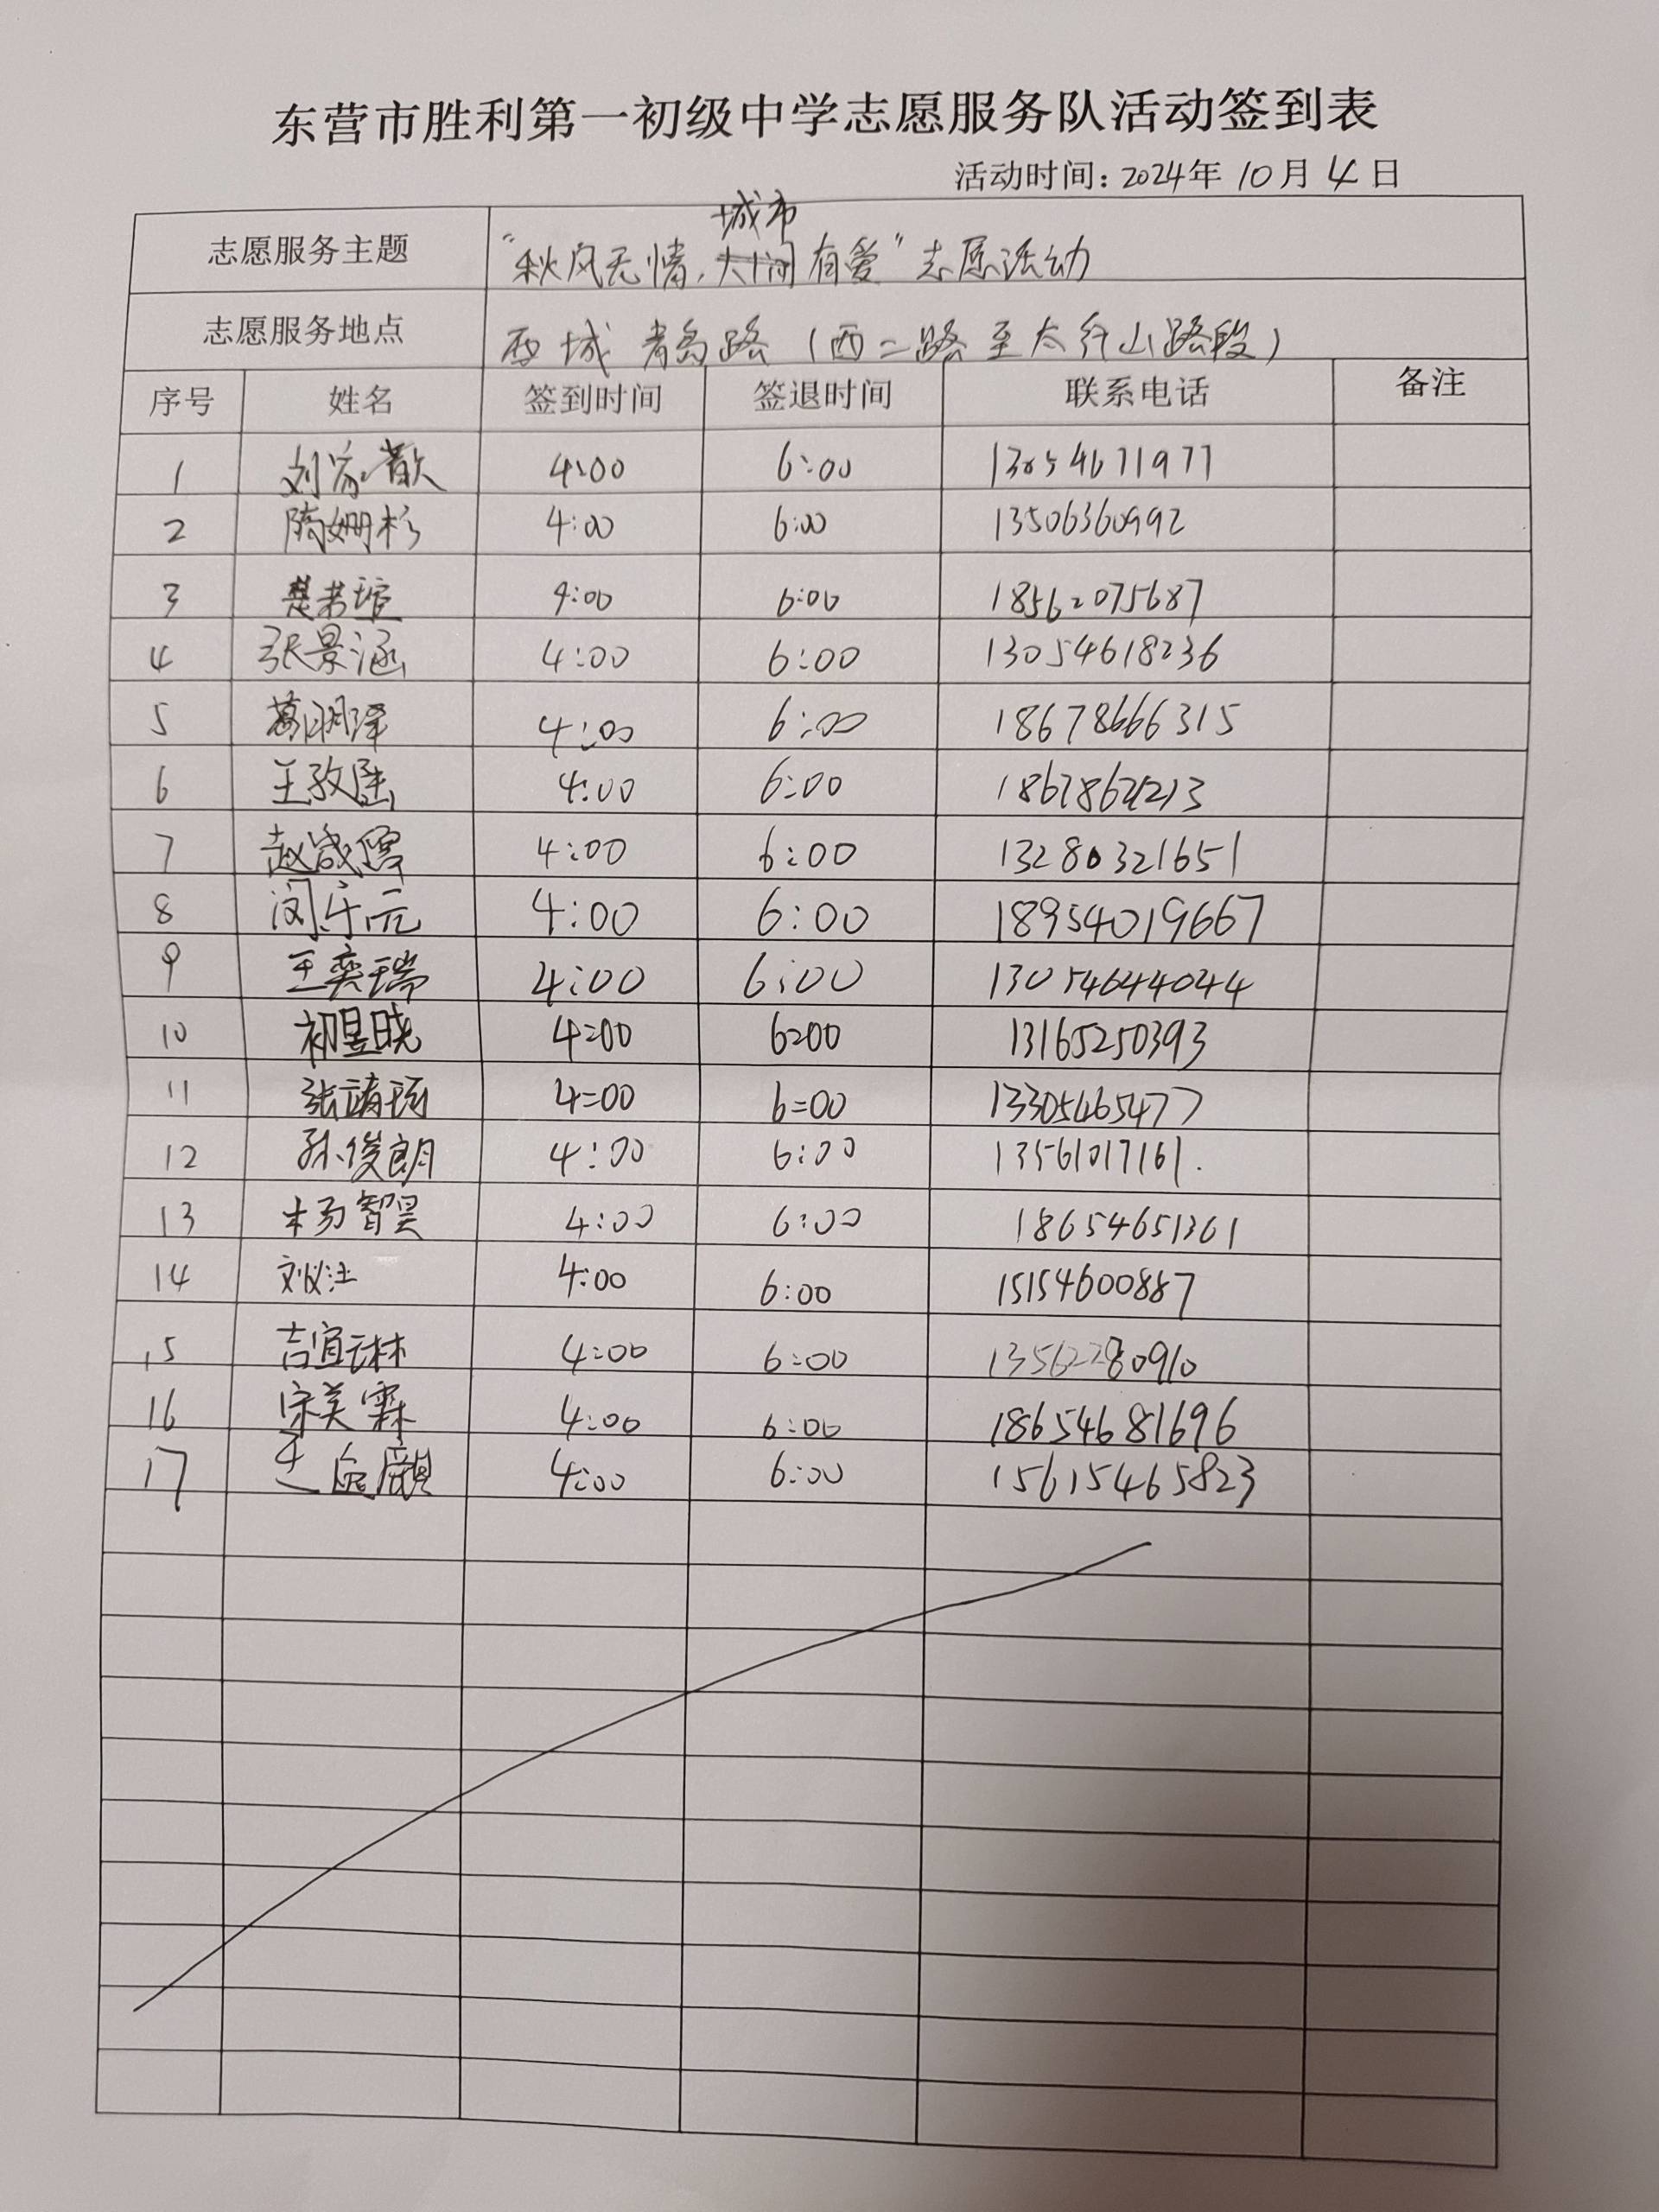 东营市胜利第一初级中学志愿服务队活动签到表
活动时间：2024年 10月 4日
志愿服务主题 “秋风无情，城市有爱”志愿活动
志愿服务地点 西城 青岛路（西二路至太行山路段）
序号 姓名 签到时间 签退时间 联系电话 备注
1 刘家歆 4:00 6:00 13054671977
2 隋姗杉 4:00 6:00 13506360992
3 楚若瑄 4:00 6:00 18562075687
4 张景涵 4:00 6:00 13054618236
5 葛明泽 4:00 6:00 18678666315
6 4:00 6:00
7 4:00 6:00 13280321651
8 闵乐元 4:00 6:00 18954019667
9 王奕瑞 4:00 6:00 13054644044
10 初昱晓 4:00 6:00 13165250393
11 张靖珂 4:00 6:00 13305465477
12 孙俊朗 4:00 6:00 13561017161.
13 杨智昊 4:00 6:00 18654651361
14 4:00 6:00 15154600887
15 吉宜霖 4:00 6:00 13562280910
16 宋美霖 4:00 6:00 18654681696
17 4:00 6:00 15615465823